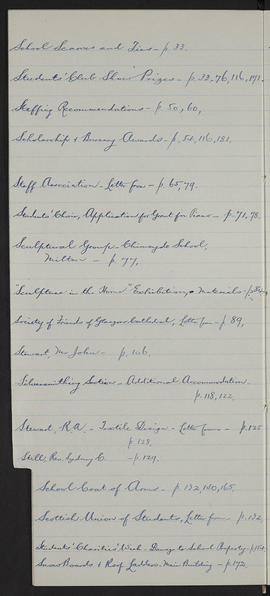 School Scarves and Ties - p. 33.
Students' Club Show Prizes - p. 33, 76, 116, 171.
Staffing Recommendations - p. 50, 60,
Scholarship & Bursary Awards - p. 54, 116, 181.
Staff Association - Letter from - p. 65, 79.
Students' Choir, Application for Grant for Piano - p. 71, 78.
Sculptural Group - School,
Milton - p. 77,
"Sculpture in the Home" Exhibition, Materials - p.
Society of Friends of Glasgow Cathedral, Letter from - p 89,
Stewart, Mr John - p. 106.
Silversmithing Section - Additional Accommodation.
p. 118, 122.
Stewart, R.A. - Textile Design - Letter from - p. 125
p 128.
Still, Rev. Sydney C. - p. 129.
School Coat of Arms - p. 132, 150, 165.
Scottish Union of Students, Letter from p. 132,
Students' Charities' Week - Damage to School Property - p.
Snow Boards & Roof Ladders, Main Building - p. 172.